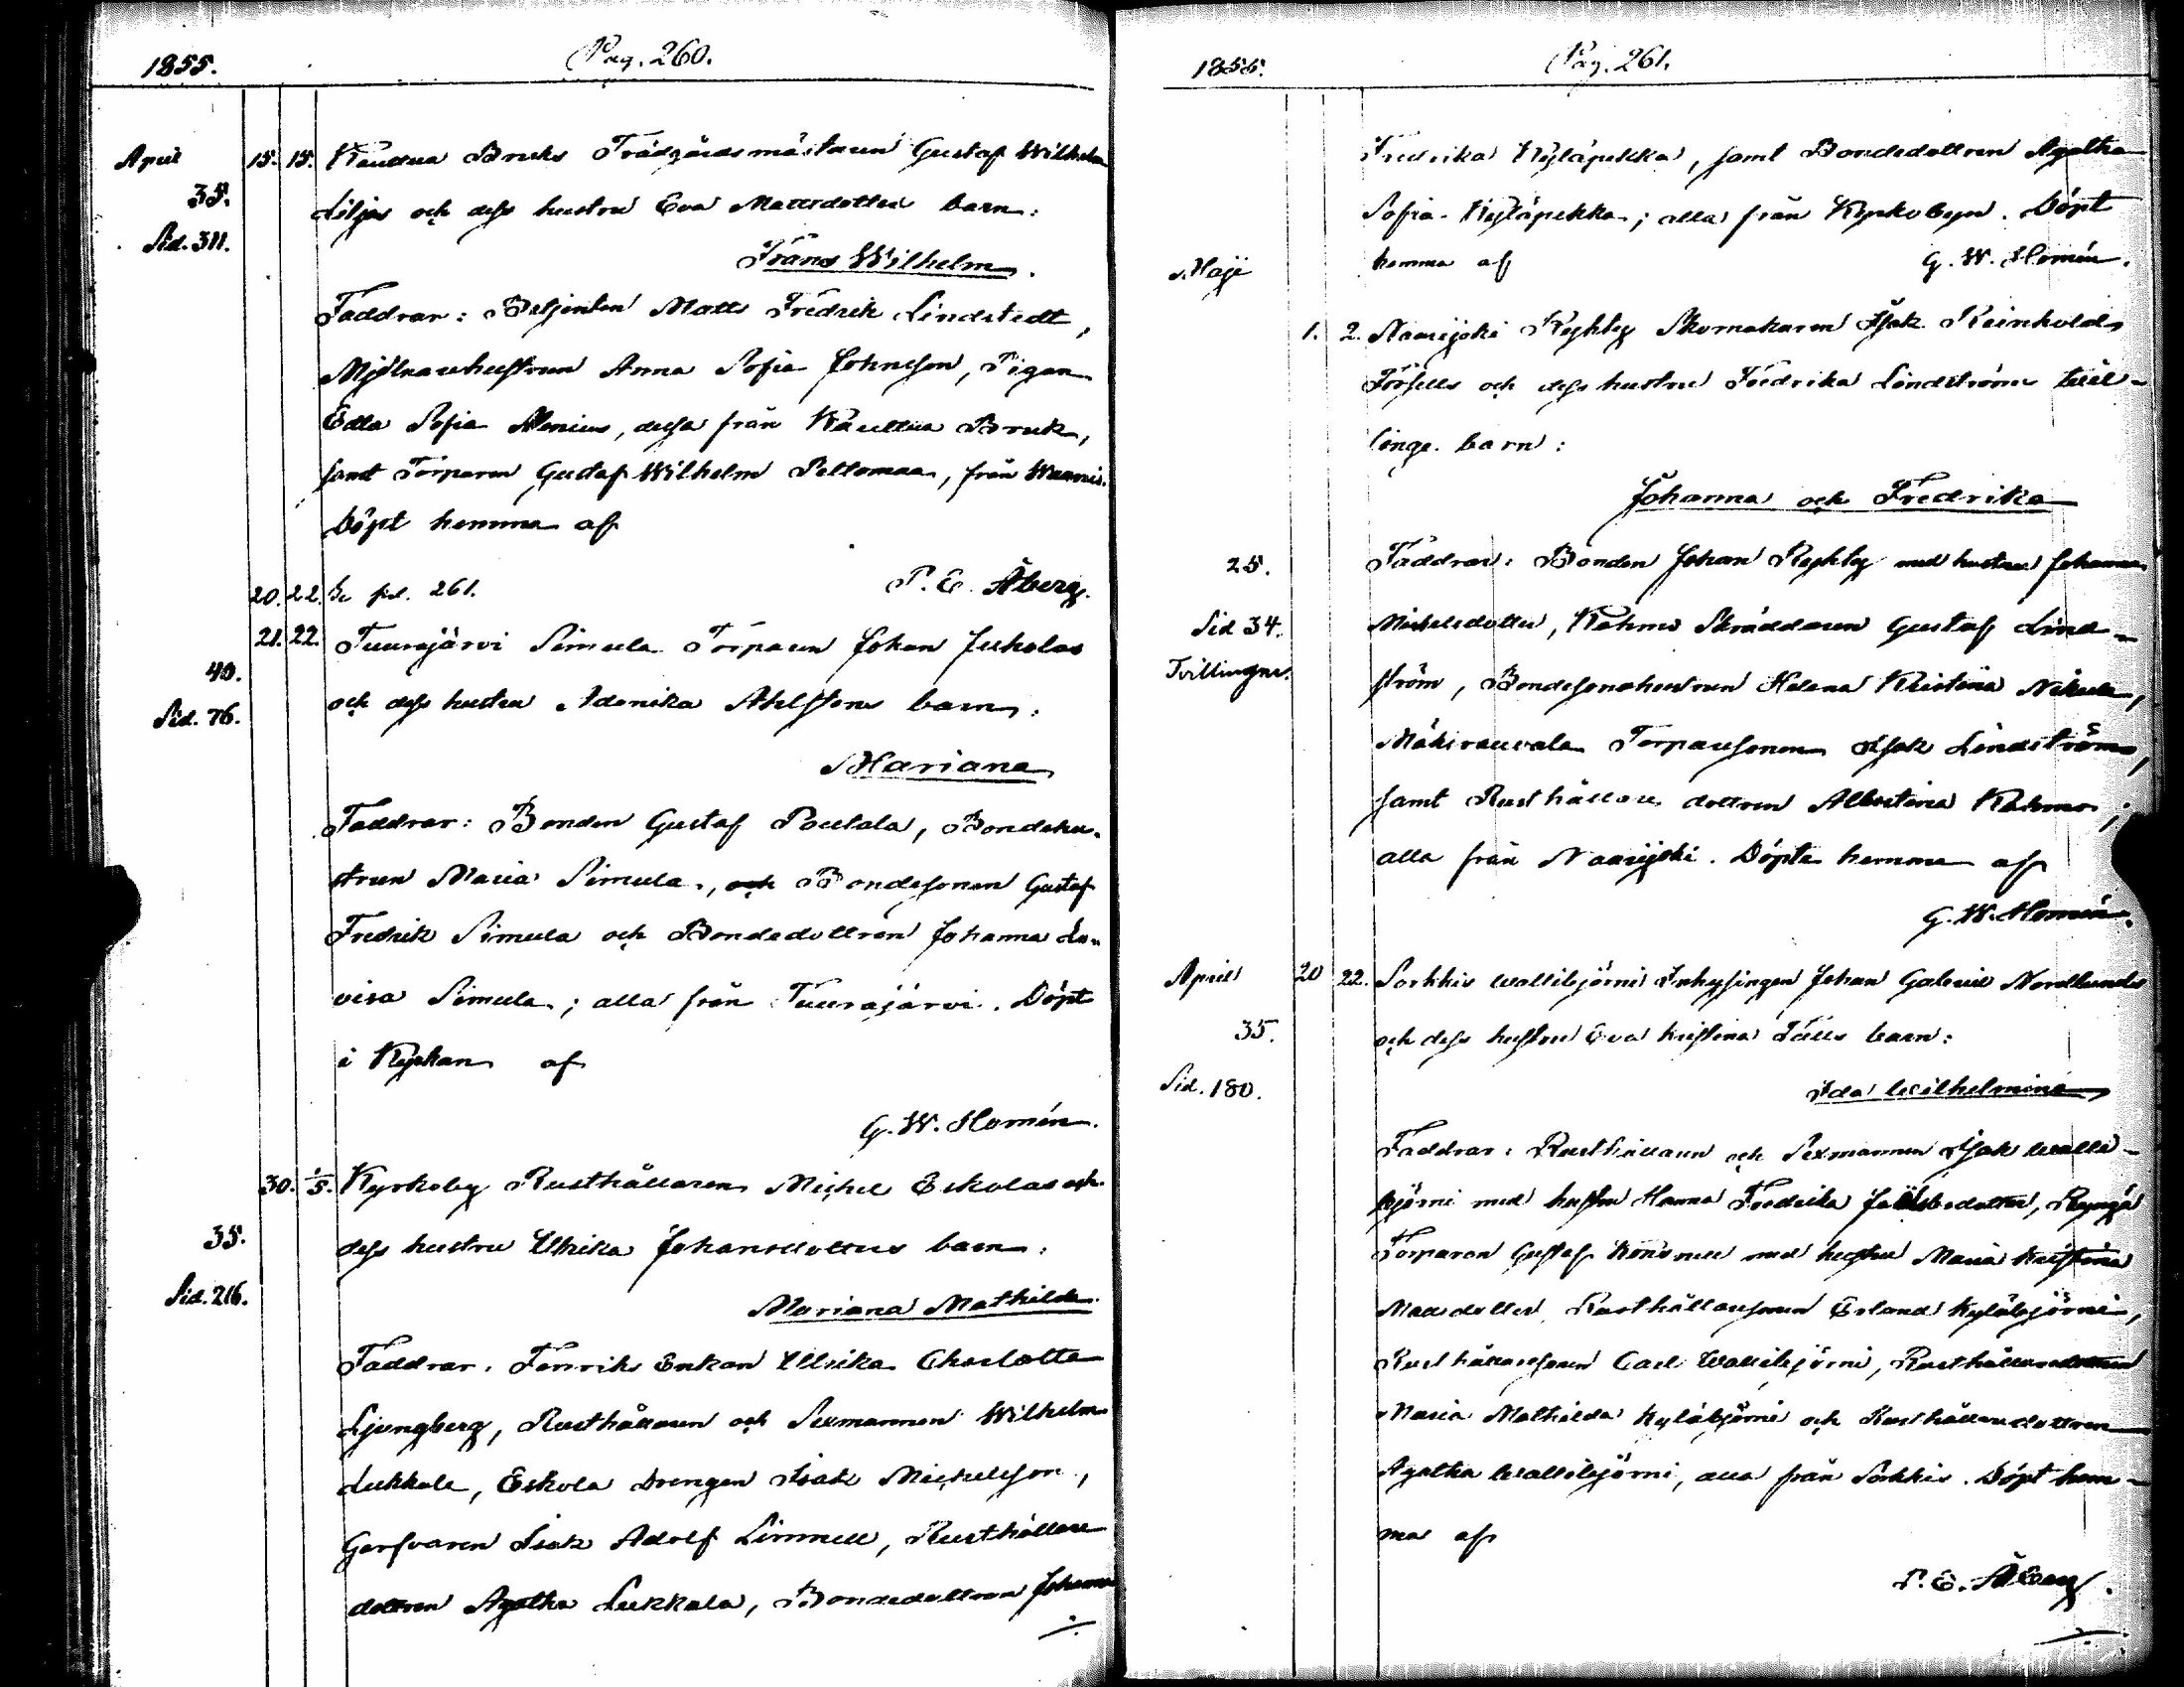 1855.
Pag. 260.
April 15. 15. Kauttua Bruks Trädgårdsmästaren Gustaf Wilhelm
35. Liljas och dess hustru Eva Mattsdotters barn:
Sid. 311.
Frans Wilhelm.
Faddrar: Betjenten Matts Fredrik Lindstedt,
Mjölnarehustrun Anna Sofia Johnsson, Pigan
Edla Sofia Alenius, dessa från Kauttua Bruk,
samt Torparen Gustaf Wilhelm Peltomaa, från
Döpt hemma af
P. E. Åberg.
20. 22. Se pal. 261.
21. 22. Tuurajärvi Simula Torparen Johan Juholas
40.
Sid. 76. och dess hustru Adonika Ahlstens barn:
Mariana
Faddrar: Bonden Gustaf Poutala, Bondehu-
strun Maria Simula, och Bondesonen Gustaf
Fredrik Simula och Bondedottren Johanna Lo-
visa Simula; alla från Tuurajärvi. Döpt
i Kyrkan af
G. W. Homén.
30. 1/5. Kyrkoby Rusthållaren Michel Eskolas och
35. dess hustru Ulrika Johansdotters barn:
Sid. 216.
Mariana Mathilda.
Faddrar: Fenriks Enkan Ulrika Charlotta
Ljungberg, Rusthållaren och Sexmannen Wilhelm
Lukkala, Eskola Drengen Isak Michelsson,
Garfvaren Isak Adolf Limnell, Rusthållare
dottren Agatha Lukkala, Bondedottren Johanna
1855.
Pag. 261.
Fredrika Kyläpekka, samt Bondedottren Agatha
Sofia Kyläpekka; alla från Kyrkobyn. Döpt
hemma af G. W. Homén.
Maji
1. 2. Naarijoki Kyhky Skomakaren Isak Reinholds
Forsells och dess hustru Fredrika Lindströms tvil-
linge barn:
Johanna och Fredrika
25. Faddrar: Bonden Johan Kyhky med hustru Johanna
Sid 34. Michelsdotter, Rahmo Skräddaren Gustaf Lind-
Tvillingar.
ström, Bondesonshustrun Helena Kristina
Mäkirauvala Torparesonen Isak Lindström,
samt Rusthållare dottren Albertina Rahmo;
alla från Naarijoki. Döpta hemma af
G. W. Homén.
April 20 22. Sorkkis Wallibjörni Inhysingen Johan Gabriel Nordlunds
35. och dess hustru Eva Kristina barn:
Sid. 180.
Ida Wilhelmina
Faddrar: Rusthållaren och Sexmannen Isak Walli-
björni med hustru Hanna Fredrika
Torparen Gustaf med hustru Maria Kristina
Matsdotter, Rusthållaresonen Erland Kyläbjörni,
Rusthållaresonen Carl Wallibjörni, Rusthållaredottren
Maria Mathilda Kyläbjörni och Rusthållaredottren
Agatha Wallibjörni, alla från Sorkkis. Döpt hem-
ma af
P. E. Åberg.